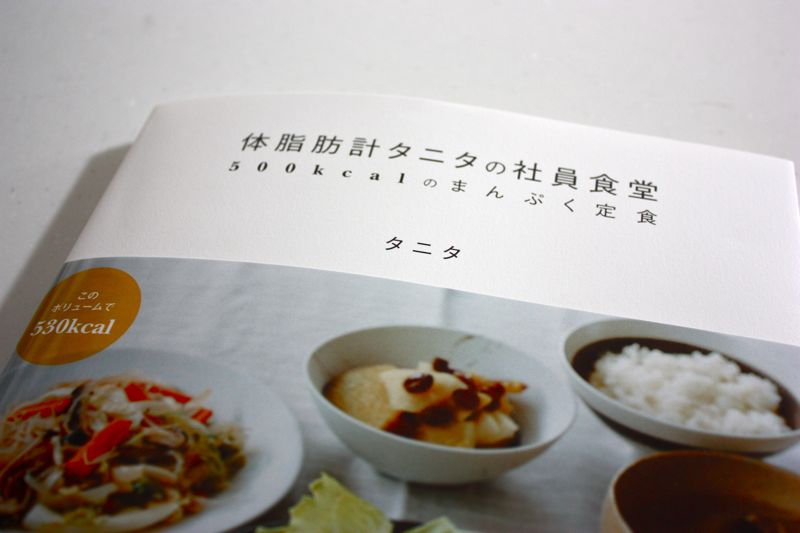 体脂肪計タニタの社員食堂
500kcalのまんぷく定食
タニタ
この
ボリュームで
530kcal